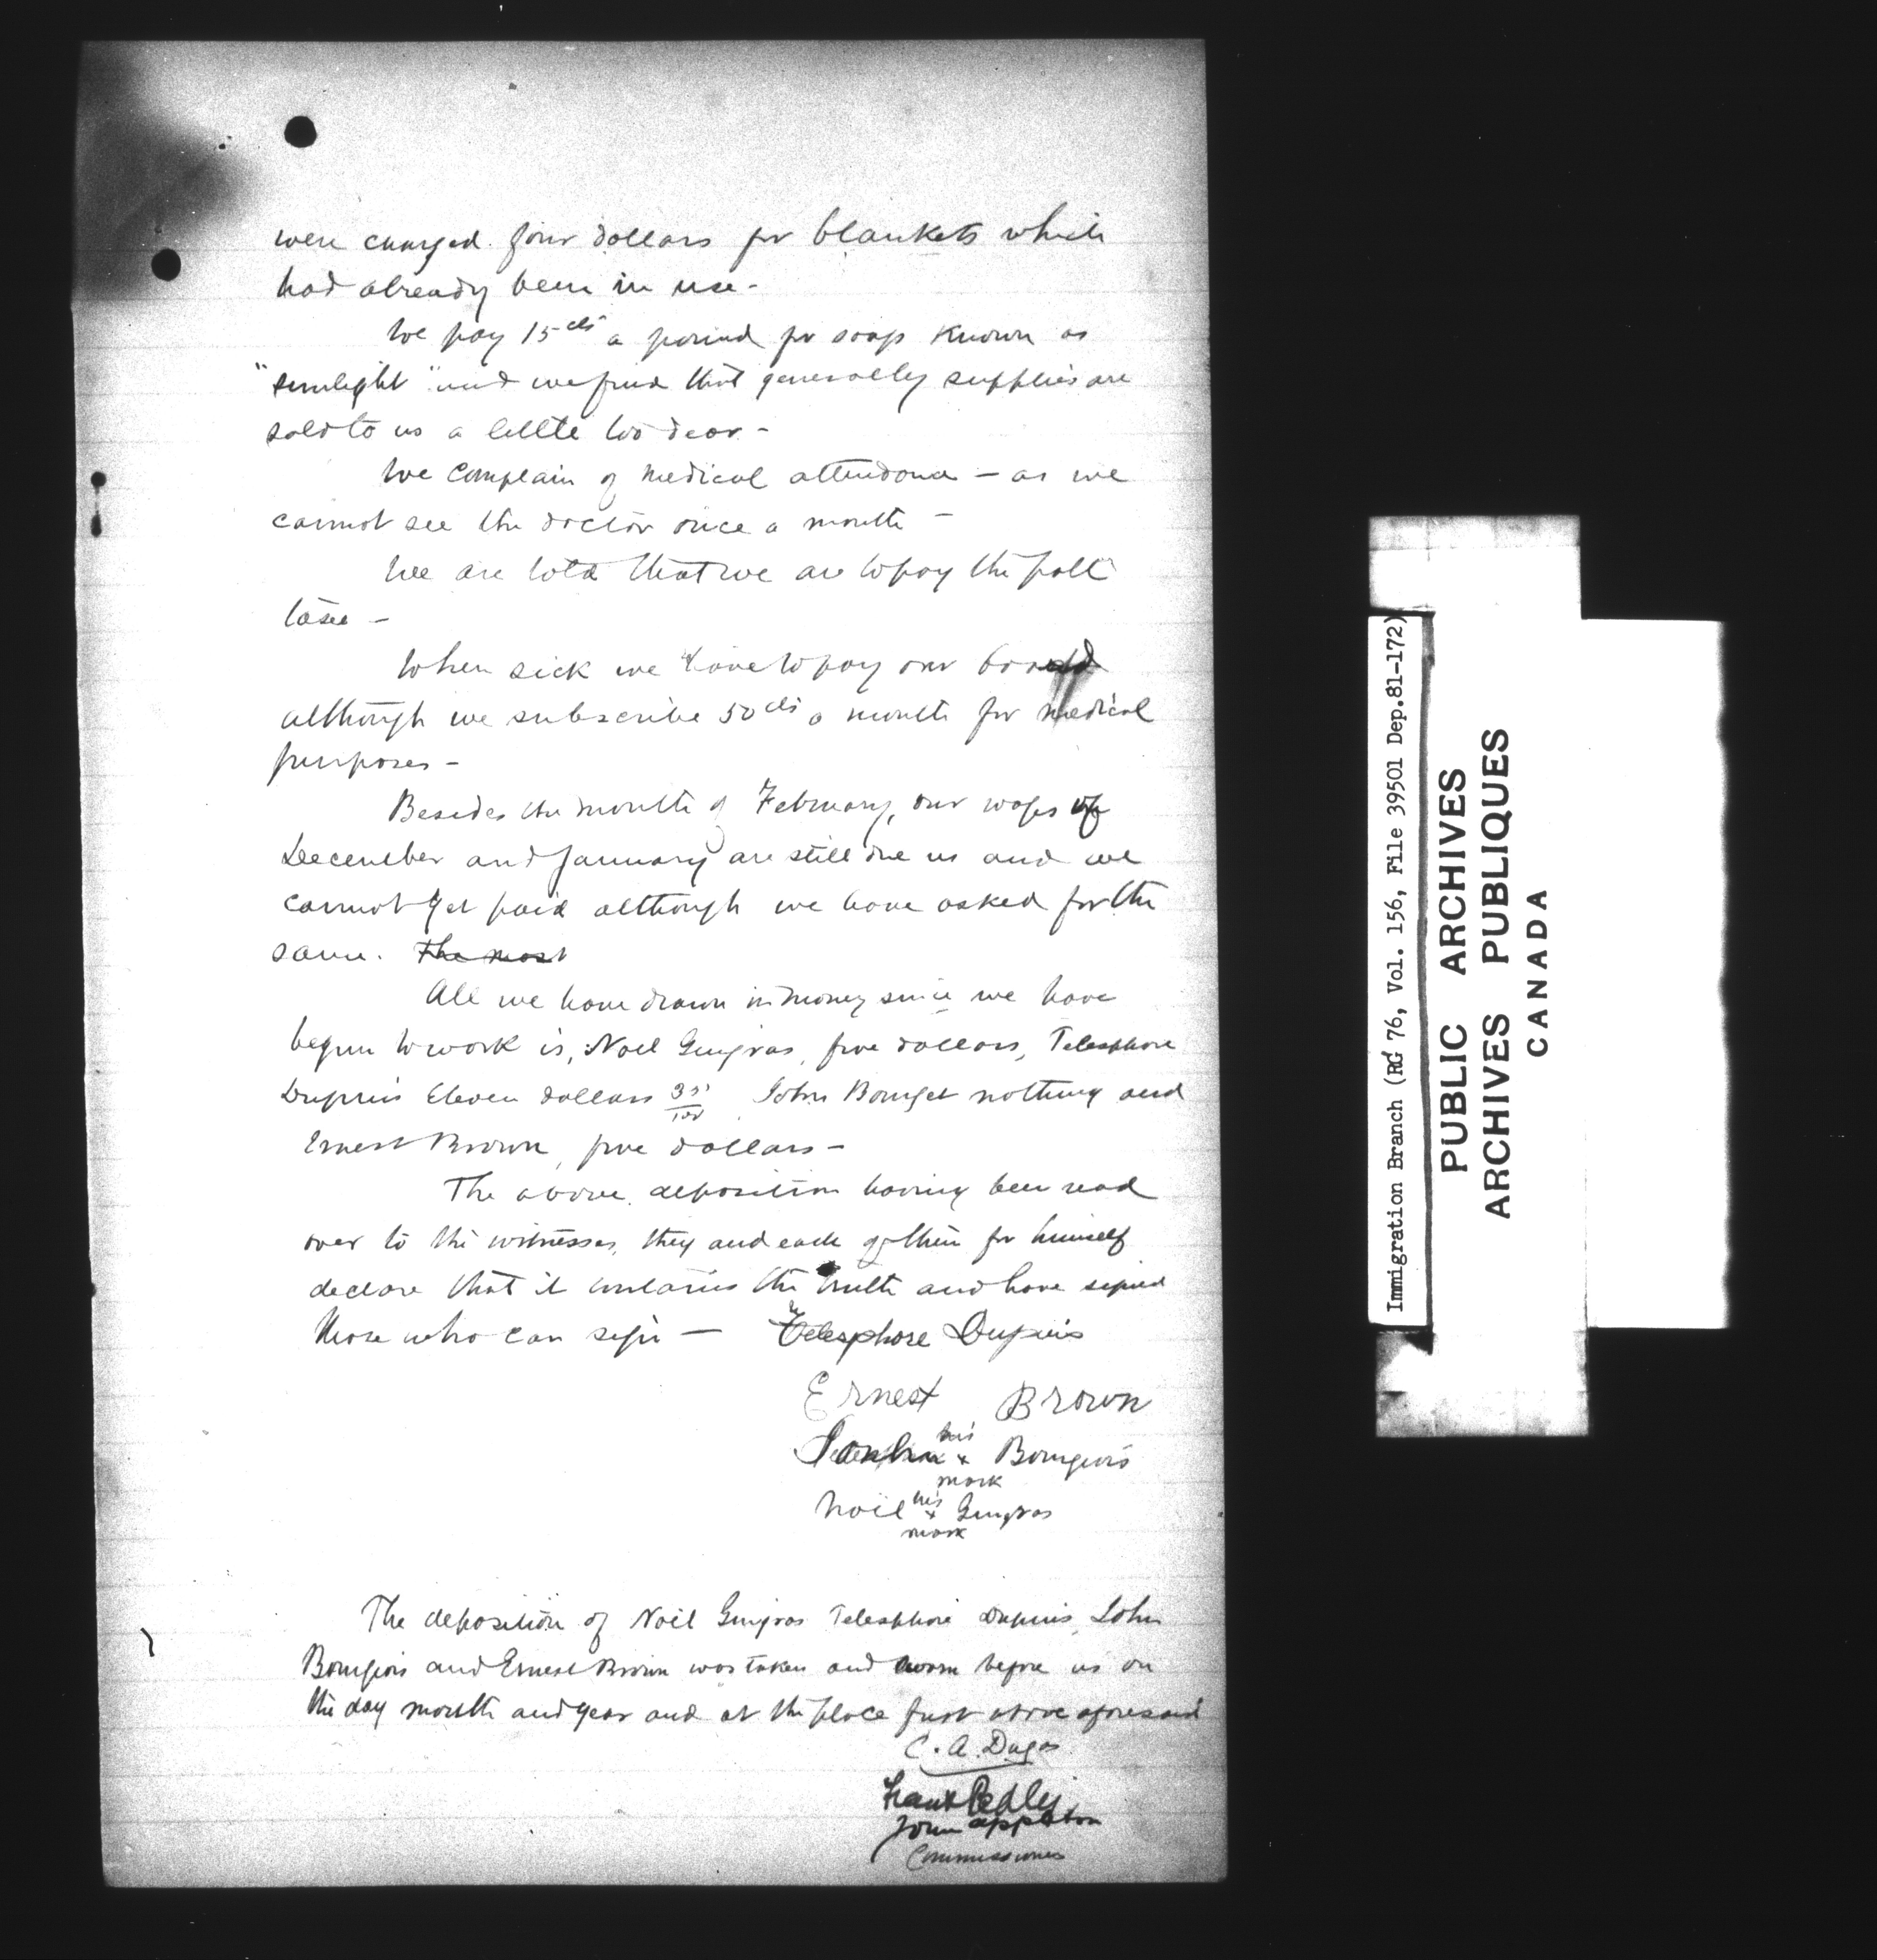 were charged four dollars for blankets which
had already been in use -
We pay 15 cts a pound for soap known as
"sunlight" and we find that generally supplies are
sold to us a little too dear -
We complain of medical attendance - as we
cannot see the doctor once a month -
We are told that we are to pay the poll
taxe -
When sick we have to pay our board
although we subscribe 50 cts a month for medical
purposes -
Besides the month of February, our wages of
December and January are still due us and we
cannot get paid although we have asked for the
same. The most
All we have drawn in money since we have
begun to work is, Noel Gingras, five dollars, Telesphore
Dupuis Eleven dollars 35/100 John Bourget nothing and
Ernest Brown, five dollars -
The above deposition having been read
over to the witnesses, they and each of them for himself
declare that it contains the truth and have signed
those who can sign - Telesphore Dupuis
Ernest Brown
his
x Bourgeois
mark
Noël his x Gingras
mark
The deposition of Noël Gingras Telesphore Dupuis, John
Bourgeois and Ernest Brown was taken and sworn before us on
the day month and year and at the place first above aforesaid
C. A. Dugas
Frank Pedley
John Appleton
Commissioners
Immigration Branch (RG 76, Vol. 156, File 39501 Dep.81-172)
PUBLIC ARCHIVES
ARCHIVES PUBLIQUES
CANADA